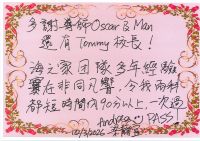 多謝導師Oscar & Man
還有Tommy校長！
海之家團隊多年經驗
實在非同凡響，令我兩科
都短時間內90分以上，一次過
Andrea PASS!
10/3/2026